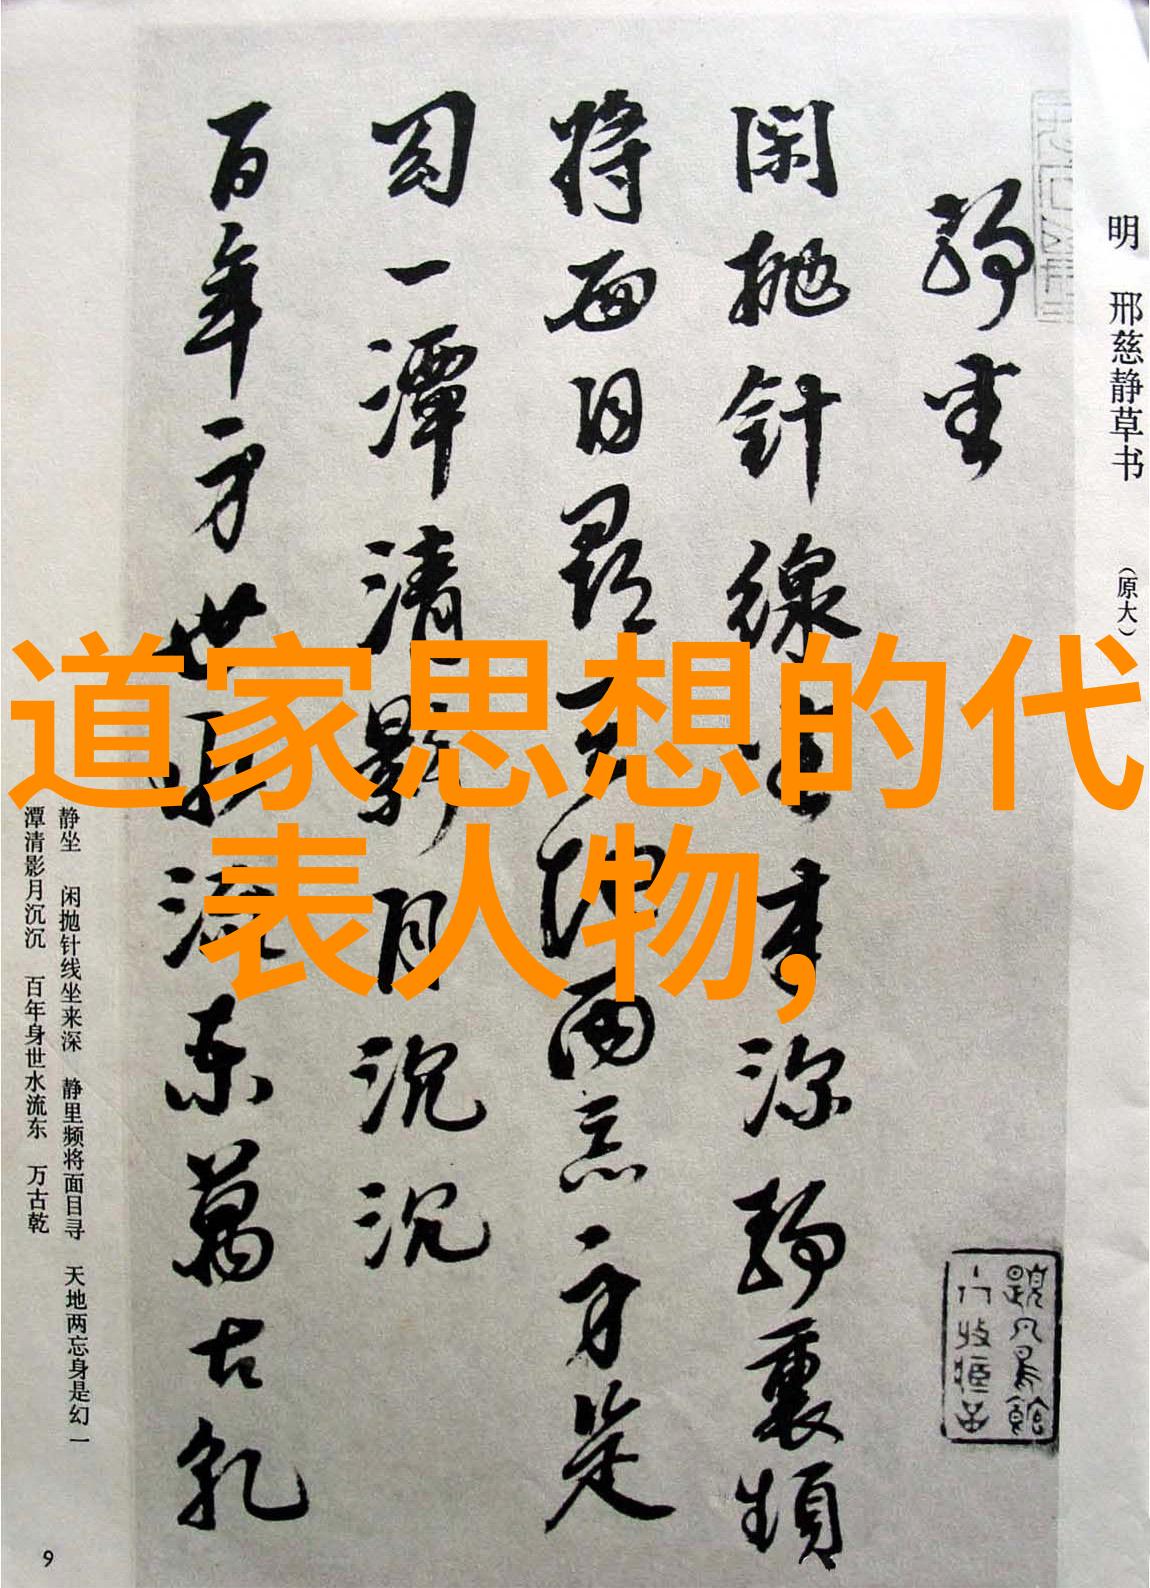 明 邢慈静草书 （原大）
静坐
闲抛针线坐来深静裏频
将面目寻天地两忘身是
幻一潭清影月沉沉
百年身世水流东万古乾
道家思想的代
表人物,
静坐 闲抛针线坐来深 静里频将面目寻 天地两忘身是幻 一
潭清影月沉沉 百年身世水流东 万古乾
9